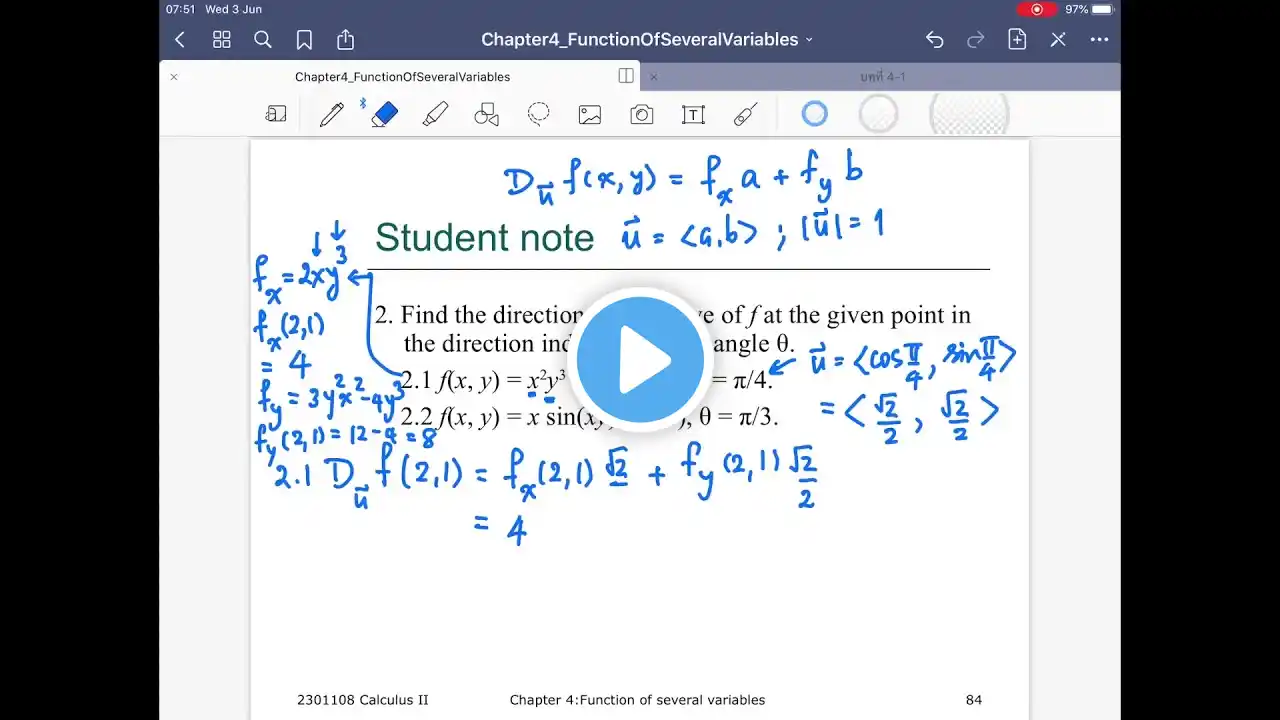 07:51 Wed 3 Jun 97%
Chapter4_FunctionOfSeveralVariables
Chapter4_FunctionOfSeveralVariables
บทที่ 4-1
D_u⃗ f(x,y) = f_x a + f_y b
Student note u⃗ = <a,b> ; |u⃗| = 1
f_x = 2xy³
f_x(2,1)
= 4
f_y = 3y²x² - 4y³
f_y(2,1) = 12 - 4 = 8
2. Find the direction of f at the given point in
the direction angle θ.
2.1 f(x, y) = x²y³ = π/4.
u⃗ = <cos π/4, sin π/4>
= <√2/2, √2/2>
2.2 f(x, y) = x sin( , θ = π/3.
2.1 D_u⃗ f(2,1) = f_x(2,1) √2 + f_y(2,1) √2/2
= 4
2301108 Calculus II Chapter 4:Function of several variables 84